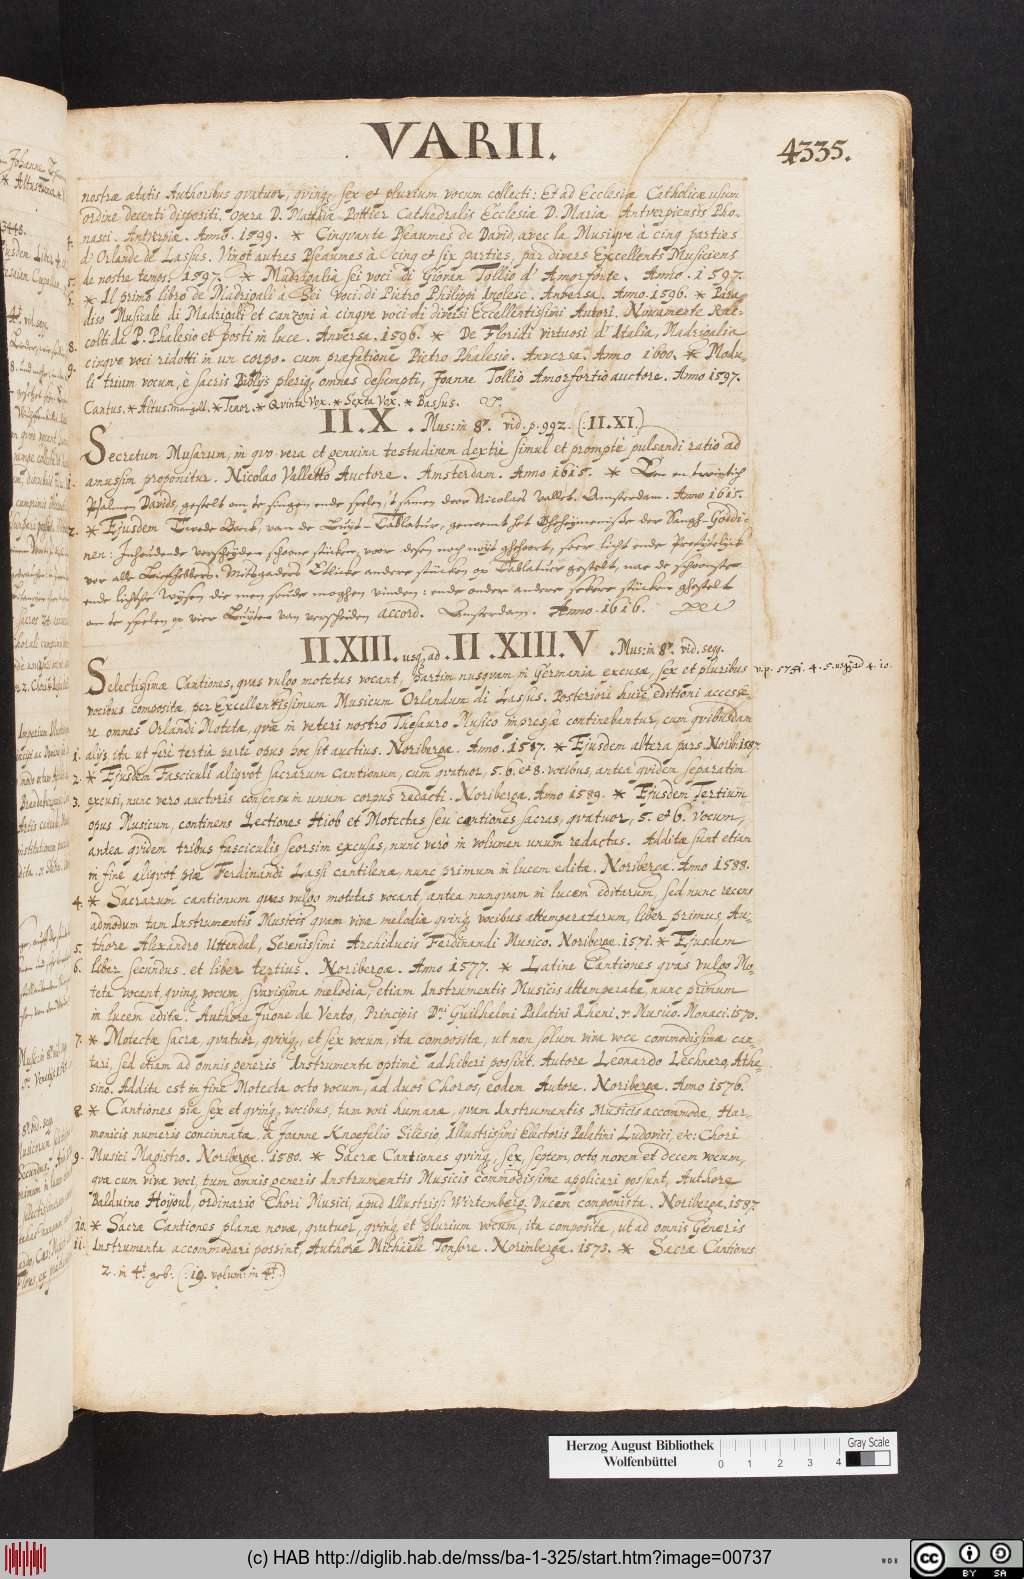 VARII.
4335.
nostræ ætatis Authoribus qvatuor, qving, sex et plurium vocum collecti: Et ad Ecclesiæ Catholicæ usum
ordine decenti dispositi. Opera D. Matthiæ Pottier Cathedralis Ecclesiæ D. Mariæ Antverpiensis Pho-
nasci. Antverpiæ. Anno. 1599. * Cinqvante Pseaumes de David, avec la Musiqve à cinq parties
d'Orlande de Lassus. Vingt autres Pseaumes à cinq et six parties, par divers Excellents Musiciens
de nostre temps. 1597. * Madrigalia sei voci di Giovan Tollio d'Amorforte. Anno. 1597.
* Il primo libro de Madrigali à Sei voci di Pietro Philippi Inglese. Anversa. Anno. 1596. * Para-
diso Musicale di Madrigali et canzoni à cinqve voci di diversi Eccellentissimi Autori. Novamente Rac-
colti da P. Phalesio et posti in luce. Anversa. 1596. * De Floridi virtuosi d'Italia, Madrigalia
cinqve voci ridotti in un corpo. cum præfatione Pietro Phalesio. Anversa. Anno 1600. * Modu-
li trium vocum, è sacris Biblijs pleriq, omnes desempti, Joanne Tollio Amorfortio auctore. Anno 1597.
Cantus. * Altus. * Tenor. * Qvinta Vox. * Sexta Vox. * Bassus.
II.X. Mus: in 8º. vid. p. 992. (.II.XI.)
Secretum Musarum, in qvo vera et genuina testudinem dextrè simul et promptè pulsandi ratio ad
amussim proponitur. Nicolao Valletto Auctore. Amsterdam. Anno 1615. * Een en twintich
Psalmen Davids, gestelt om te singen ende spelen, t' samen door Nicolaes Vallet. Amsterdam. Anno 1615.
2. * Ejusdem Tweede Boeck, van de Luyt-Tablatur, genoemt het Gheheymenisse der Sangh-Goddi-
nen: Inhoudende verscheyden schoone stucken, voor desen noch noyt ghehoort, seer licht ende Profytelyck
voor alle Liefhebbers. Mitsgaders Etlicke andere stucken op Tablatuer gestelt, nae de schoonste
ende lichtste wysen die men soude moghen vinden: ende onder andere sekere stucken ghestelt
om te spelen op vier Luyten van verscheiden accord. Amsterdam. Anno. 1616.
II.XIII. usq, ad. II.XIII.V. Mus: in 8º. vid. seqq.
Selectissimæ Cantiones, qvas vulgo motetas vocant, partim nusqvam in Germania excusæ, sex et pluribus
vocibus compositæ, per Excellentissimum Musicum Orlandum di Lassus. Posteriori huic editioni accesse-
re omnes Orlandi Motetæ, qvæ in veteri nostro Thesauro Musico impressæ continebantur, cum qvibusdam
1. alijs, ita ut ferè tertiâ parte opus hoc sit auctius. Noribergæ. Anno. 1587. * Ejusdem altera pars. Norib: 1587.
2. * Ejusdem Fasciculi aliqvot sacrarum cantionum, cum qvatuor, 5. 6. et 8. vocibus, antea qvidem separatim
3. excusi, nunc vero auctoris consensu in unum corpus redacti. Noribergæ. Anno 1589. * Ejusdem Tertium
opus Musicum, continens Lectiones Hiob et Motectas seu cantiones sacras, qvatuor, 5. et 6. vocum,
antea qvidem tribus fasciculis seorsim excusas, nunc verò in volumen unum redactas. Additæ sunt etiam
in fine aliqvot piæ Ferdinandi Lassi cantilenæ, nunc primum in lucem editæ. Noribergæ. Anno 1588.
4. * Sacrarum cantionum qvas vulgo motetas vocant, antea nunqvam in lucem editarum, sed nunc recens
admodum tam Instrumentis Musicis qvam vivæ melodiæ qving, vocibus attemperatarum, liber primus, Au-
5. thore Alexandro Uttendal, Serenissimi Archiducis Ferdinandi Musico. Noribergæ. 1571. * Ejusdem
6. liber secundus. et liber tertius. Noribergæ. Anno 1577. * Latinæ Cantiones qvas vulgo Mo-
teta vocant, qving, vocum, svavissima melodia, etiam Instrumentis Musicis attemperatæ, nunc primum
in lucem editæ. Authore Juone de Vento, Principis Dni Guilhelmi Palatini Rheni. &. Musico. Monaci. 1570.
7. * Motectæ sacræ, qvatuor, qving, et sex vocum, ita compositæ, ut non solum viva voce commodissimæ can-
tari, sed etiam ad omnis generis Instrumenta optimè adhiberi possint. Autore Leonardo Lechnero, Athe-
sino. Addita est in fine Motecta octo vocum, ad duos Choros, eodem Autore. Noribergæ. Anno 1576.
8. * Cantiones piæ sex et qving, vocibus, tam voci humanæ, qvam Instrumentis Musicis accommodæ, Har-
monicis numeris concinnatæ, à Joanne Knoefelio Silesio, Illustrissimi Electoris Palatini Ludovici, &c: Chori
9. Musici Magistro. Noribergæ. 1580. * Sacræ Cantiones qving, sex, septem, octo, novem et decem vocum,
qvæ cum vivæ voci, tum omnis generis Instrumentis Musicis commodissime applicari possunt, Authore
Balduino Hoyoul, ordinario Chori Musici, apud Illustriss: Wirtemberg. Ducem componista. Noribergæ. 1587.
10. * Sacræ Cantiones planè novæ, qvatuor, qving et plurium vocum, ita compositæ, ut ad omnis Generis
11. Instrumenta accommodari possint, Authore Michaële Tonsore. Norimbergæ. 1573. * Sacræ Cantiones
2. in 4t. geb: (.19. volum: in 4t.)
Herzog August Bibliothek
Wolfenbüttel
0 1 2 3 4
Gray Scale
(c) HAB http://diglib.hab.de/mss/ba-1-325/start.htm?image=00737
WDB
cc BY SA